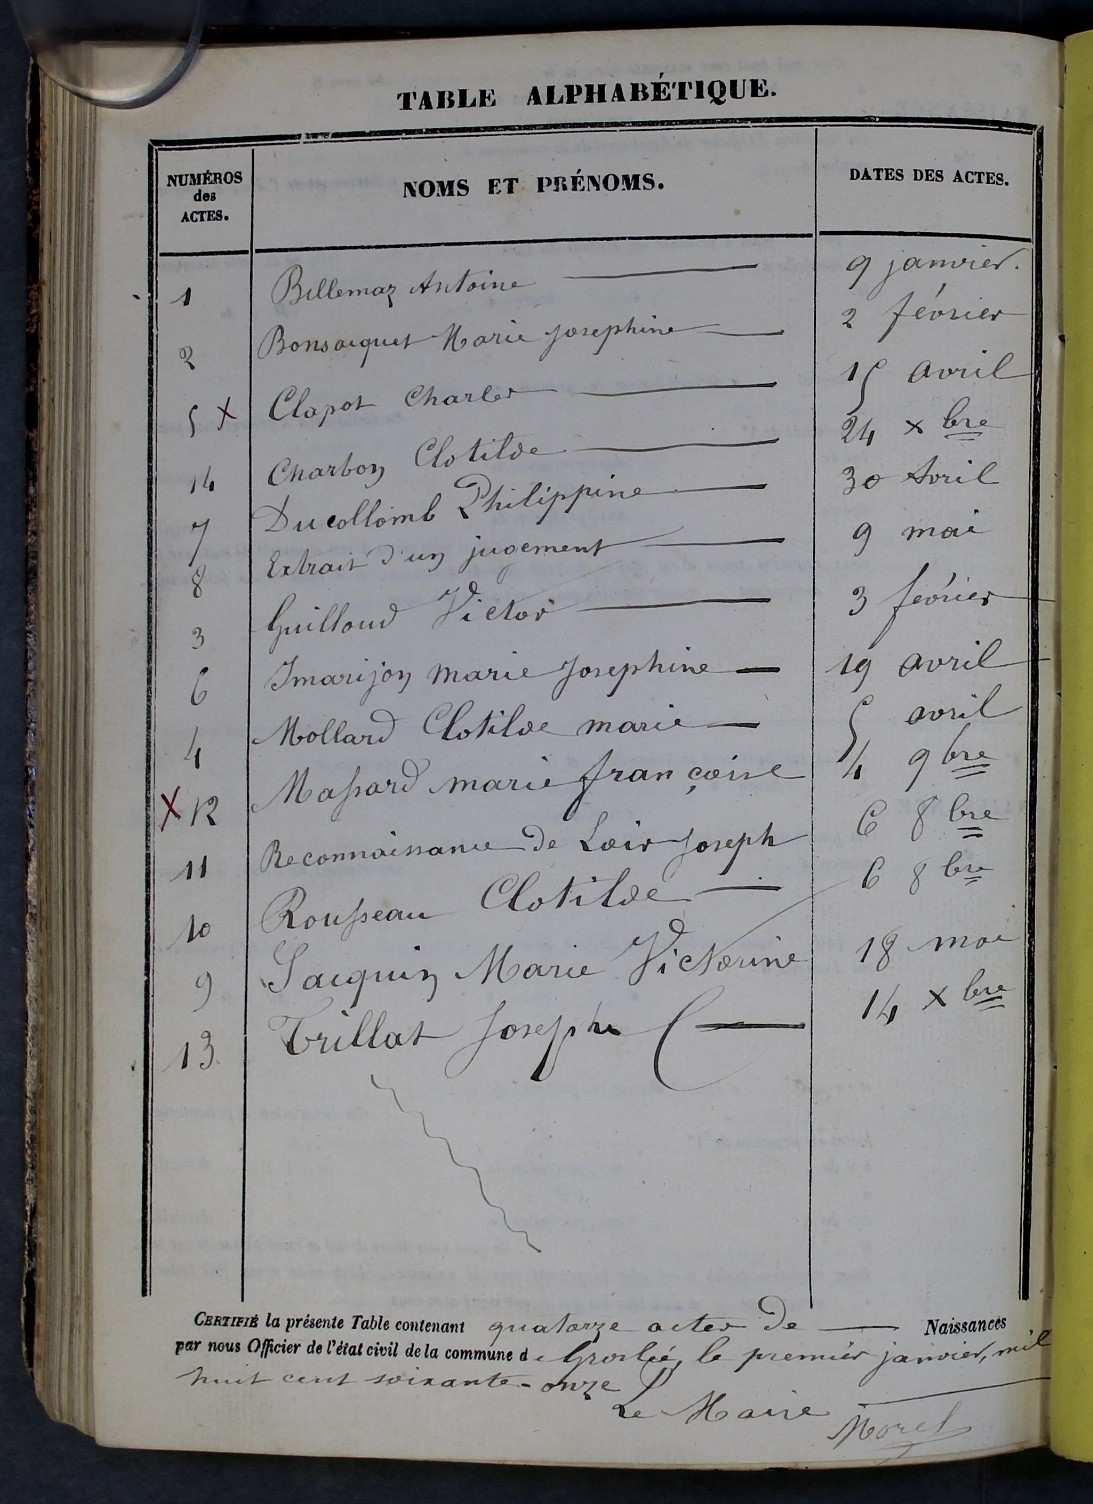 TABLE ALPHABÉTIQUE.
NUMÉROS des ACTES. NOMS ET PRÉNOMS. DATES DES ACTES.
1 Billemaz Antoine 9 janvier.
2 Bonsacquet Marie Josephine 2 février
5 X Clapot Charles 15 avril
14 Charbon Clotilde 24 xbre
7 Ducollomb Philippine 30 Avril
8 Extrait d'un jugement 9 mai
3 Guilloud Victor 3 février
6 Imarijon marie Josephine 19 avril
4 Mollard Clotilde marie 5 avril
X 12 Massard marie françoise 4 9bre
11 Reconnaissance de Loir Joseph 6 8bre
10 Rousseau Clotilde 6 8bre
9 Sacquin Marie Victorine 18 mai
13. Trillat Joseph 14 xbre
CERTIFIÉ la présente Table contenant quatorze actes de Naissances
par nous Officier de l'état civil de la commune de Groslée, le premier janvier, mil
huit cent soixante-onze
Le Maire
Morel